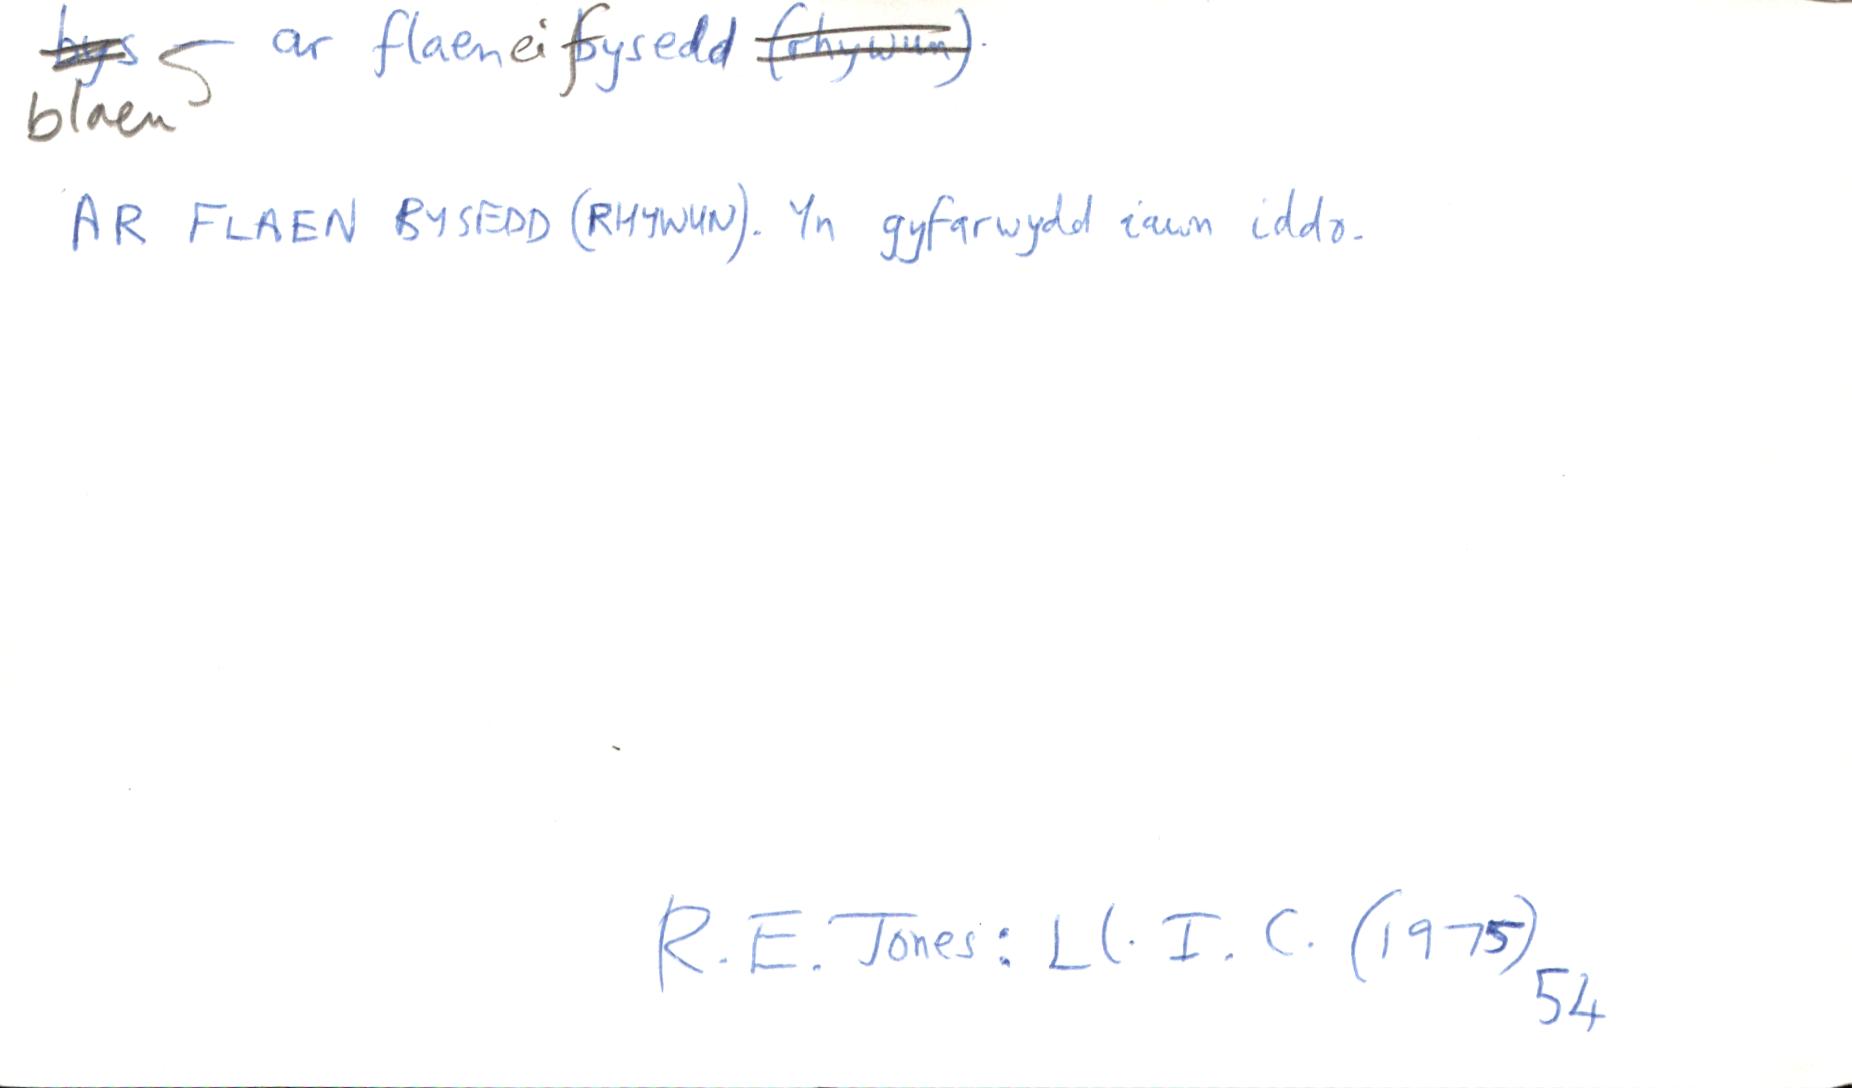 bys ar flaen ei fysedd (rhywun).
blaen
AR FLAEN BYSEDD (RHYWUN). Yn gyfarwydd iawn iddo.
R.E. Jones: Ll. I. C. (1975)
54